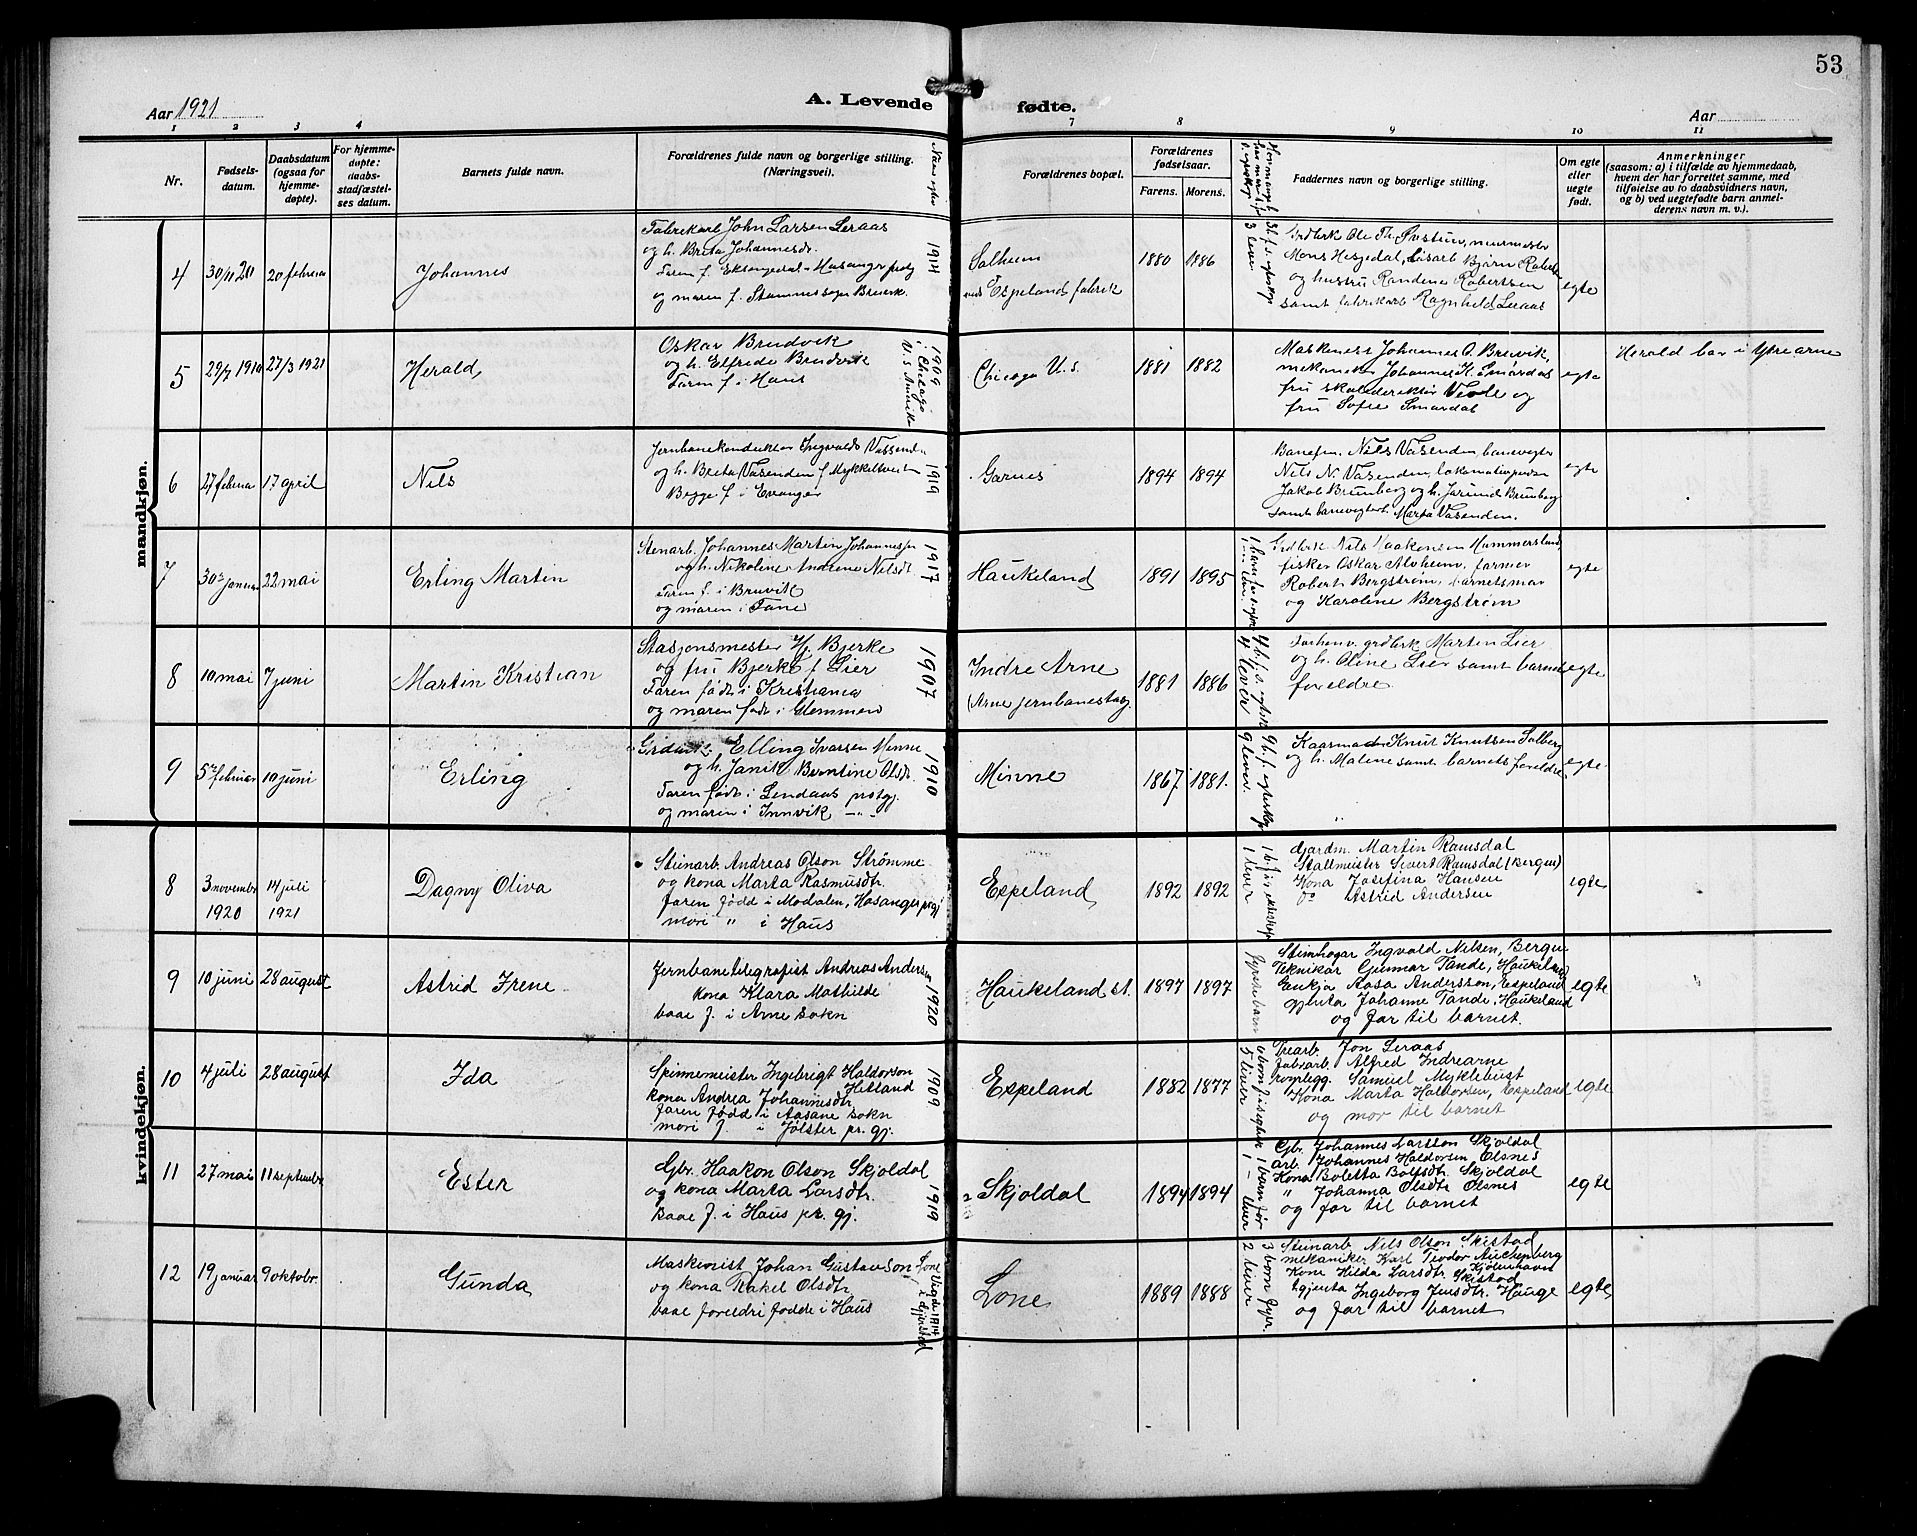 53
Aar 1921
A. Levende fødte.
Aar
1 2 3 4 7 8 9 10 11
Nr.
Fødsels-
datum.
Daabsdatum
(ogsaa for
hjemme-
døpte).
For hjemme-
døpte:
daabs-
stadfæstel-
ses datum.
Barnets fulde navn.
Forældrenes fulde navn og borgerlige stilling.
(Næringsvei).
Forældrenes bopæl.
Forældrenes
fødselsaar.
Farens. Morens.
Faddernes navn og borgerlige stilling.
Om egte
eller
uegte
født.
Anmerkninger
(saasom: a) i tilfælde av hjemmedaab,
hvem der har forrettet samme, med
tilføielse av to daabsvidners navn,
og b) ved uegtefødte barn anmel-
derens navn m. v.).
mandkjøn.
4 30/11 20 20 februa Johannes
Fabrikarb John Larsen Leraas
og h. Brita Johannesdr.
Faren f. Eksingedal - Hosanger
og moren f. Stamnes sogn Bruvik.
1914
Solheim
ved Espeland fabrik
1880 1886
3 lever
Mons Hesjedal, Bjørn Roberts
og hustru Randine Robertsen
samt fabrikarb Ragnhild Leraas
egte
5 29/7 1910 27/3 1921 Herald
Oskar Brudvik
og h. Elfrede Brudvik
Faren f. i Haus
1909
i Chicago
Chicago U.s.
1881 1882
Johannes O. Bruvik,
mekaniker Johannes H. Smørdal
fru skoledirektør Vevle og
fru Sofie Smørdal
egte
Herald bor i Ytre arne
6 27 februa 17 april Nils
Jernbanekonduktør Ingvald Vassend
og h. Brita Vasenden f. Mykkeltveit
Begge f. i Evanger
1919
Garnes
1894 1894
Banefm. Nils Vasenden, banevogter
Nils N. Vasenden,
Jakob Brunborg og h. Brunborg
samt banevogterh. Marta Vasenden.
egte
7 30te januar 22 mai Erling Martin
Stenarb. Johannes Martin Johannesen
og h. Nikoline Andrene Nilsdt
Faren f. i Bruvik
og moren i Fane
1917
Haukeland
1891 1895
Grdbrk Nils Haakonsen Hummersland,
fisker Oskar Aloheim, farmer
Robert Bergstrøm, barnets mor
og Karoline Bergstrøm
egte
8 10 mai 7 juni Martin Kristian
Stasjonsmester Bjerke
og fru Bjerke f. Lier
Faren født i Kristiania
og moren født i Glemmen
1907
Indre Arne
(Arne jernbanestasj.
1881 1886
4 lever
Forhenv. grdbrk Martin Lier
og h. Oline Lier samt barnets
foreldre.
egte
9 5te februar 10 juni Erling
Elling Ivarsen Minne
og h. Janik Berntine Olsdt.
Faren født i Lindaas prstgj.
og moren i Innvik —„-
1910
Minne
1867 1881.
9 lever.
Kaarmand Knut Knutsen Solberg
og h. Malene samt barnets foreldre
egte
kvindekjøn.
8 3 novembr
1920
14 juli
1921
Dagny Oliva
Steinarb Andreas Olson Strømme
og kona Marta Rasmusdtr.
faren fødd i Modalen, Hosanger prgj
mori " i Haus
Espeland
1892 1892
1 lever
Gardm. Martin Ramsdal
Stallmeister Sivert Ramsdal (Bergen)
Kona Josefina Hansen
Do Astrid Andersen
egte
9 10 juni 28 august Astrid Irene
Jernbanetelegrafist Andreas Andersen
kona Klara Mathilde
baae f. i Arne sokn
1920
Haukeland st.
1897 1897
fyrste barn
Steinhogar Ingvald Nilsen, Bergen
Teknikar Gunnar Tande, Haukeland
Enkja Aasa Andersson, Espeland
gjenta Johanne Tande, Haukeland
og far til barnet.
egte
10 4 juli 28 august Ida
Spinnemeister Ingebrigt Haldorson
Helland
kona Andrea Johannesdtr.
faren fødd i Aasane sokn
mori f. i Jølster pr. gj.
1909
Espeland
1882 1877
Trearb. Jon Leraas
fabrarb. Alfred Indrearne
Samuel Myklebust
Kona Marta Haldorsen, Espeland
og mor til barnet
egte
11 27 mai 11 septembr Ester
Gbr. Haakon Olson Skjoldal
og kona Marta Larsdtr.
baae f. i Haus pr. gj.
1919
Skjoldal
1894 1894
1 barn før
1 - lever
Gbr. Johannes Larsson Skjoldal
arb. Johannes Haldorsen Olsnes
Kona Boletta Skjoldal
" Johanna Olsdtr Olsnes
og far til barnet
egte
12 19 januar 9 oktobr. Gunda
Maskenist Johan Gustavson Lone
og kona Rakel Olsdtr
baae foreldri fødde i Haus
Vigde 1914
Lone
1889 1888
3 born fyrr.
2 lever
Steinarb Nils Olson Skistad
mekaniker Karl Teodor Auchenberg
Kjøbenhavn
Kone Hilda Larsdtr. Skistad
gjenta Ingeborg Jensdtr. Hauge
og far til barnet
egte